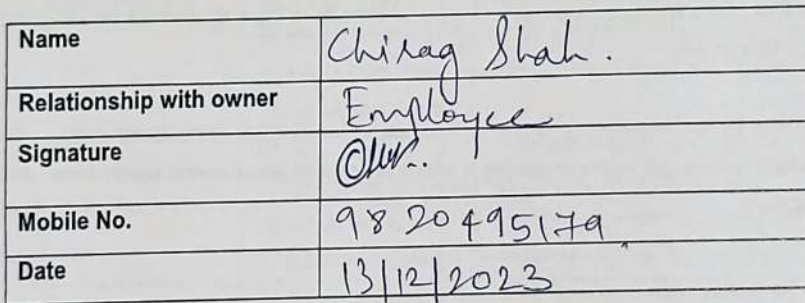 Name Chirag Shah.
Relationship with owner Employee
Signature
Mobile No. 9820495179
Date 13/12/2023